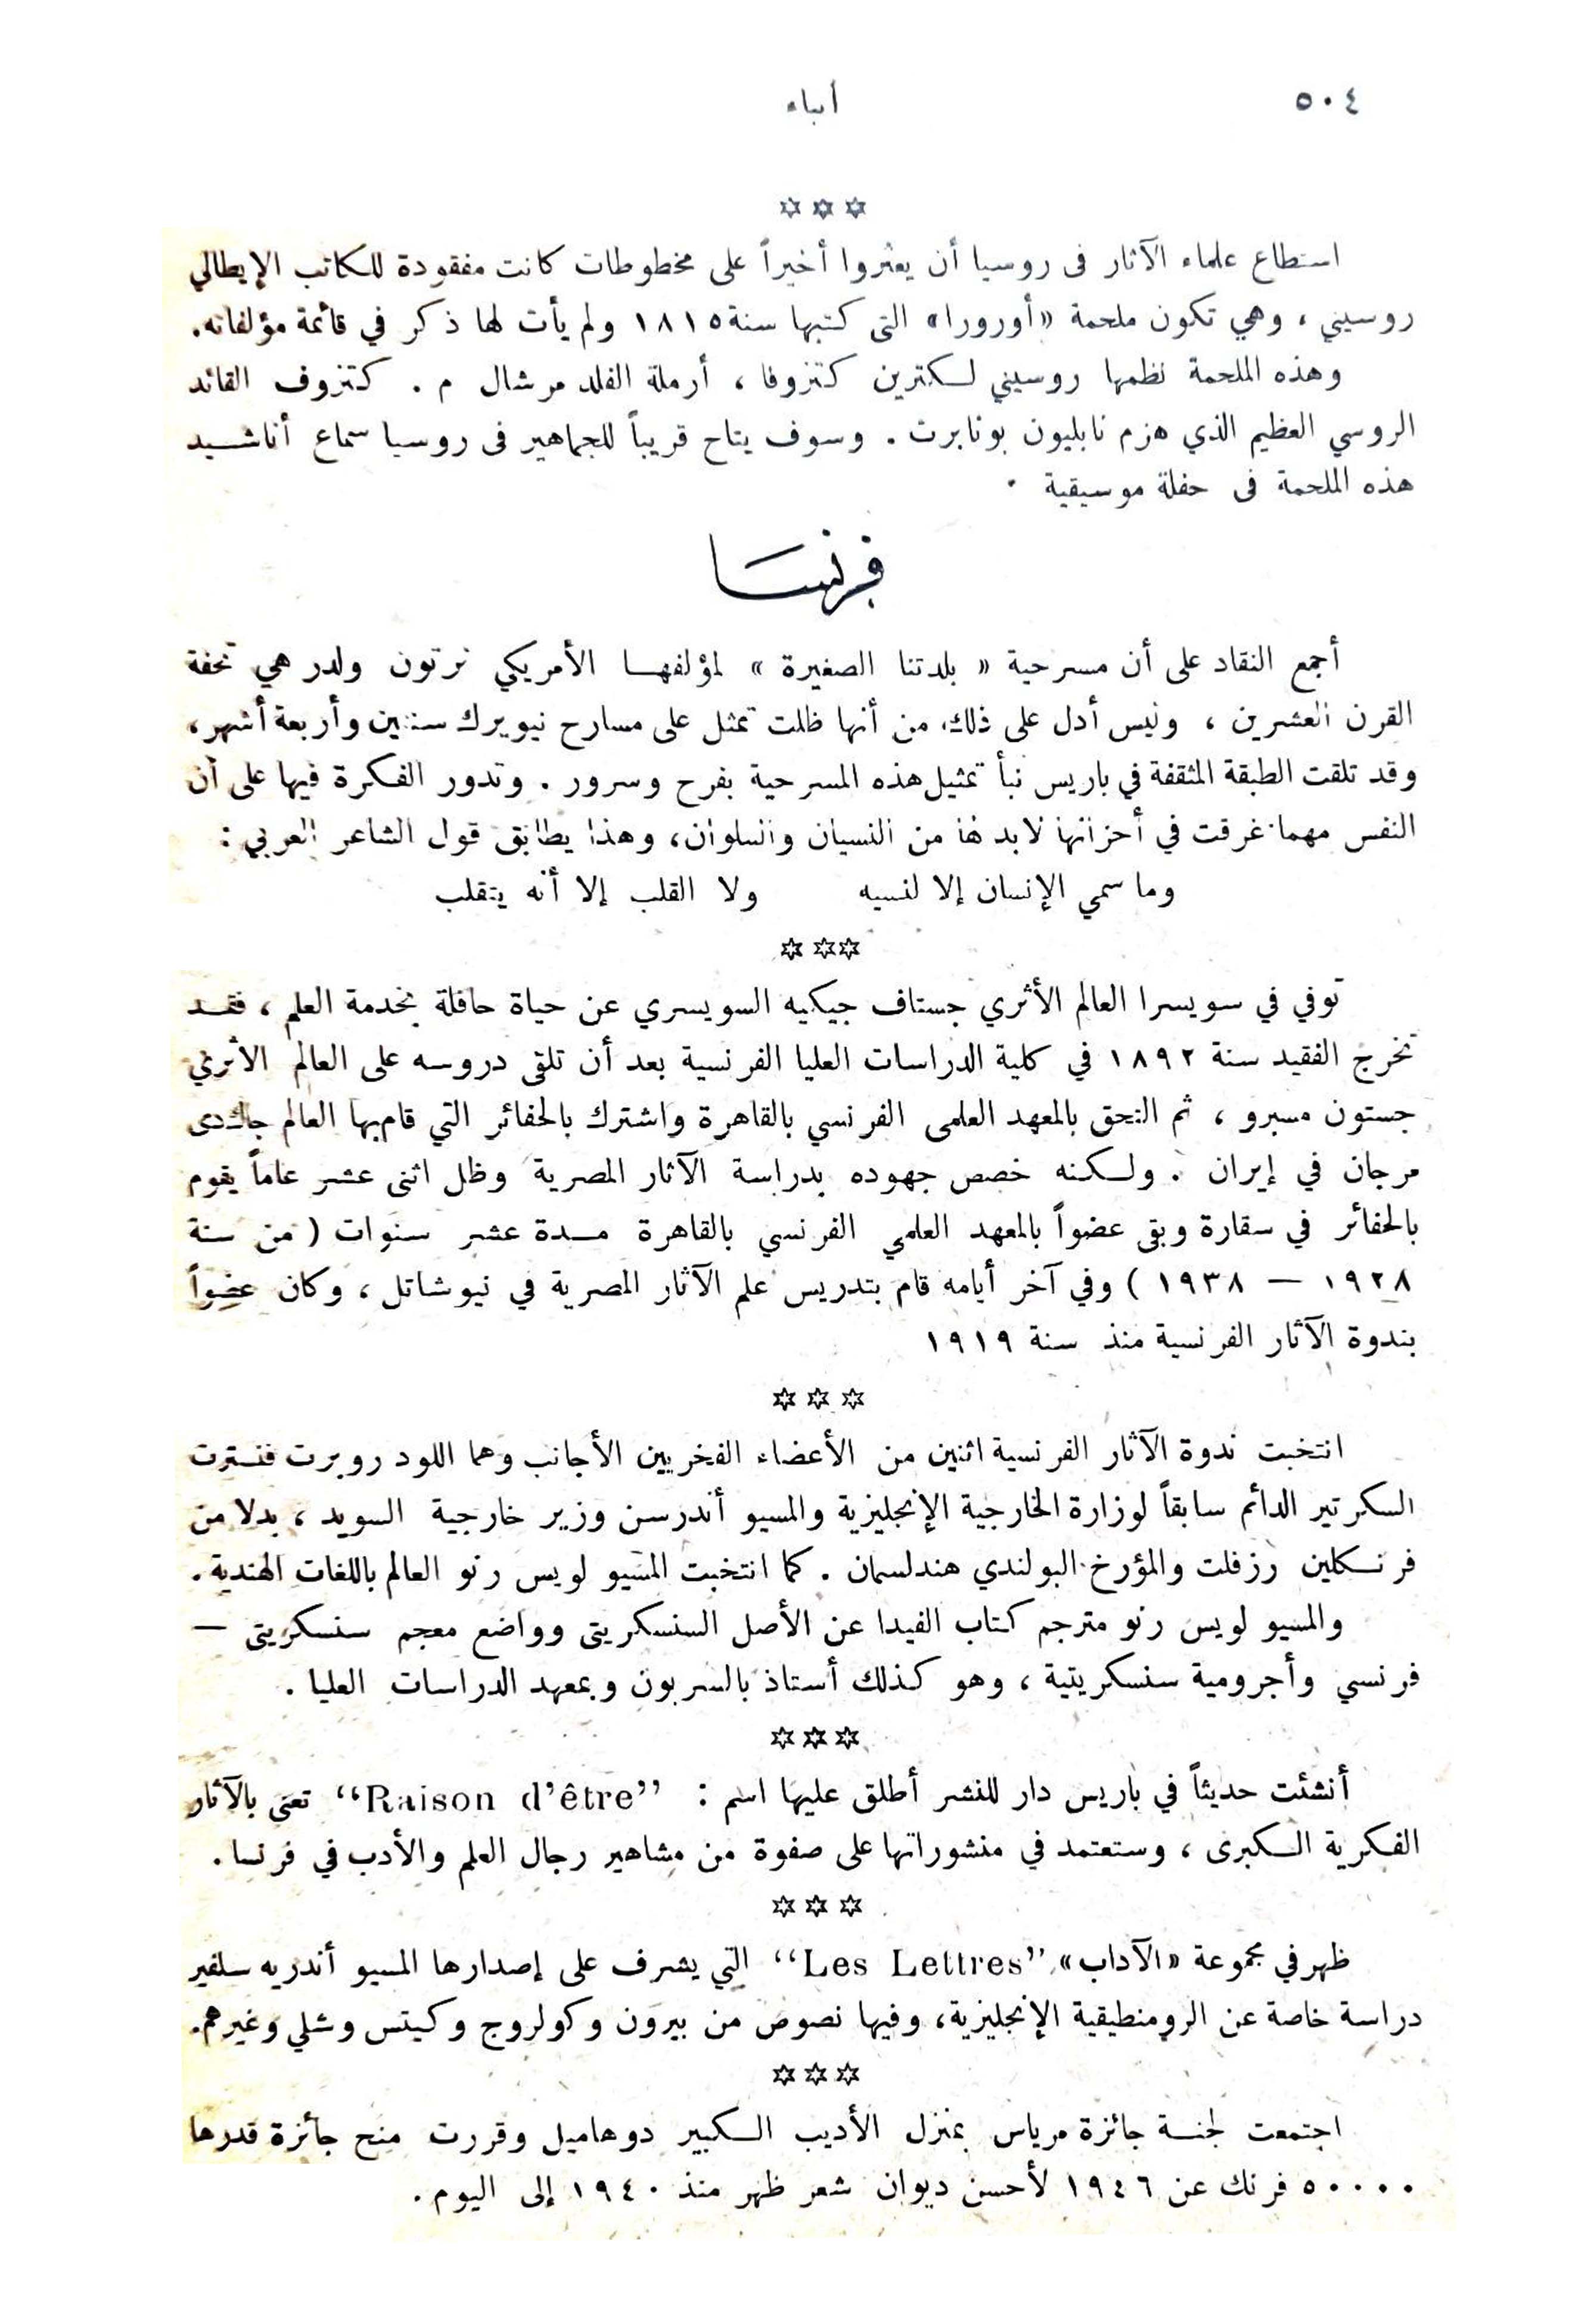 ٥٠٤
أنباء
✡ ✡ ✡
استطاع علماء الآثار فى روسيا أن يعثروا أخيراً على مخطوطات كانت مفقودة للكاتب الإيطالي
روسيني ، وهي تكون ملحمة «أورورا» التى كتبها سنة ١٨١٥ ولم يأت لها ذكر في قائمة مؤلفاته.
وهذه الملحمة نظمها روسيني لكترين كتزوفا ، أرملة الفلد مرشال م . كتزوف القائد
الروسي العظيم الذي هزم نابليون بونابرت . وسوف يتاح قريباً للجماهير فى روسيا سماع أناشيد
هذه الملحمة فى حفلة موسيقية .
فرنسا
أجمع النقاد على أن مسرحية « بلدتنا الصغيرة » لمؤلفها الأمريكي ثرتون ولدر هي تحفة
القرن العشرين ، وليس أدل على ذلك من أنها ظلت تمثل على مسارح نيويرك سنتين وأربعة أشهر،
وقد تلقت الطبقة المثقفة في باريس نبأ تمثيل هذه المسرحية بفرح وسرور . وتدور الفكرة فيها على أن
النفس مهما غرقت في أحزانها لابد لها من النسيان والسلوان، وهذا يطابق قول الشاعر العربي :
وما سمي الإنسان إلا لنسيه ولا القلب إلا أنه يتقلب
✡ ✡✡
توفي في سويسرا العالم الأثري جستاف جيكيه السويسري عن حياة حافلة بخدمة العلم ، فقد
تخرج الفقيد سنة ١٨٩٢ في كلية الدراسات العليا الفرنسية بعد أن تلقى دروسه على العالم الأثري
جستون مسبرو ، ثم التحق بالمعهد العلمى الفرنسي بالقاهرة واشترك بالحفائر التي قام بها العالم جاك دى
مرجان في إيران . ولكنه خصص جهوده بدراسة الآثار المصرية وظل اثنى عشر عاماً يقوم
بالحفائر في سقارة وبقى عضواً بالمعهد العلمي الفرنسي بالقاهرة مدة عشر سنوات ( من سنة
١٩٢٨ — ١٩٣٨ ) وفي آخر أيامه قام بتدريس علم الآثار المصرية في نيوشاتل ، وكان عضواً
بندوة الآثار الفرنسية منذ سنة ١٩١٩
✡ ✡ ✡
انتخبت ندوة الآثار الفرنسية اثنين من الأعضاء الفخريين الأجانب وهما اللود روبرت فنسترت
السكرتير الدائم سابقاً لوزارة الخارجية الإنجليزية والمسيو أندرسن وزير خارجية السويد ، بدلا من
فرنكلين رزفلت والمؤرخ البولندي هندلسمان . كما انتخبت المسيو لويس رنو العالم باللغات الهندية .
والمسيو لويس رنو مترجم كتاب الفيدا عن الأصل السنسكريتى وواضع معجم سنسكريتى —
فرنسي وأجرومية سنسكريتية ، وهو كذلك أستاذ بالسربون وبمعهد الدراسات العليا .
✡ ✡ ✡
أنشئت حديثاً في باريس دار للنشر أطلق عليها اسم : “Raison d’être” تعنى بالآثار
الفكرية الكبرى ، وستعتمد في منشوراتها على صفوة من مشاهير رجال العلم والأدب في فرنسا .
✡ ✡ ✡
ظهر في مجموعة «الآداب» “Les Lettres” التي يشرف على إصدارها المسيو أندريه سلفير
دراسة خاصة عن الرومنطيقية الإنجليزية، وفيها نصوص من بيرون وكولروج وكيتس وشلي وغيرهم.
✡ ✡ ✡
اجتمعت لجنة جائزة مرياس بمنزل الأديب الكبير دوهاميل وقررت منح جائزة قدرها
٥٠٠٠٠ فرنك عن ١٩٤٦ لأحسن ديوان شعر ظهر منذ ١٩٤٠ إلى اليوم .